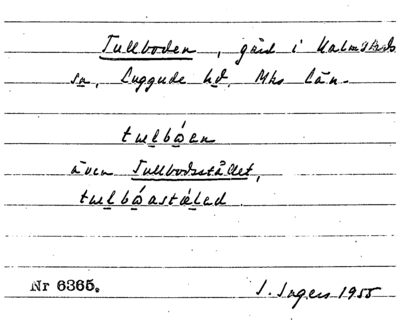 Tullboden, gård i Halmstads
sn, Luggude hd, Mhs län.
tɯlbωen
även Tullbodsstället,
tɯlbωastæled
Nr 6365. I. Ingers 1955